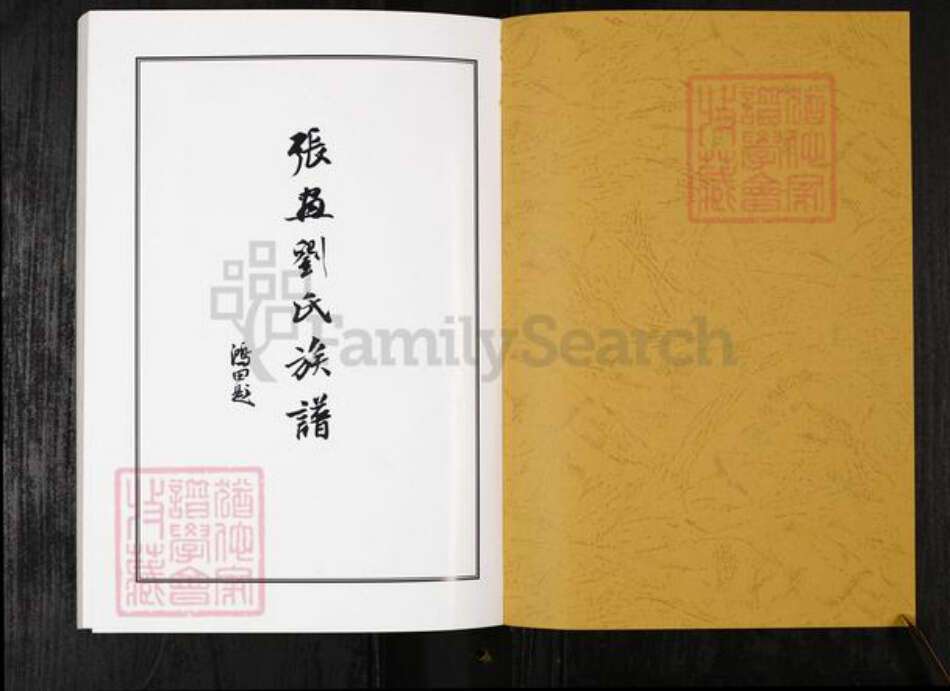 張劉氏族譜
鴻田題
猶他家
譜學會
藏
FamilySearch
猶他家
譜學會
藏